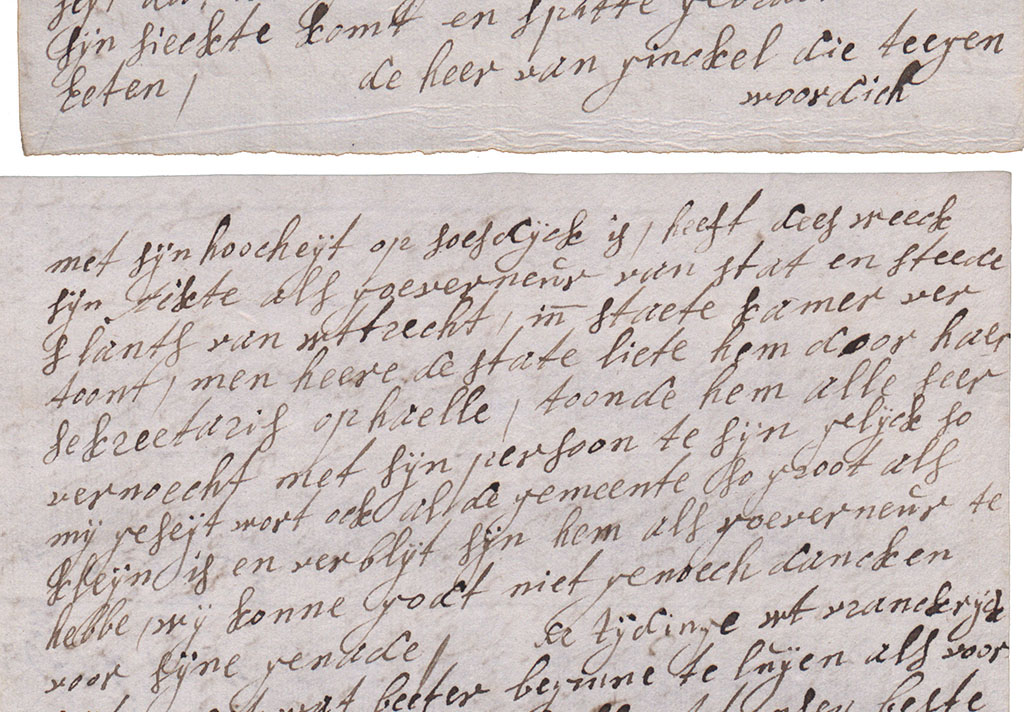 sijn sieckte komt en spatte
keten / de heer van ginckel die teegen
woordich
met sijn hoocheijt op soesdijck is / heeft dees weeck
sijn ackte als goeverneur van stat en steede
slants van wttrecht / in staete kamer ver
toont / men heere de state liete hem door haer
sekreetaris ophaelle / toonde hem alle seer
vernoecht met sijn persoon te sijn gelijck so
mij geseijt wort ock al de gemeente so groot als
kleijn is en verblijt sijn hem als goeverneur te
hebbe / wij konne godt niet genoech dancken
voor sijne genade / de tijdinge wt vranckrijck
wat beeter beginne te luijen als voor
beste